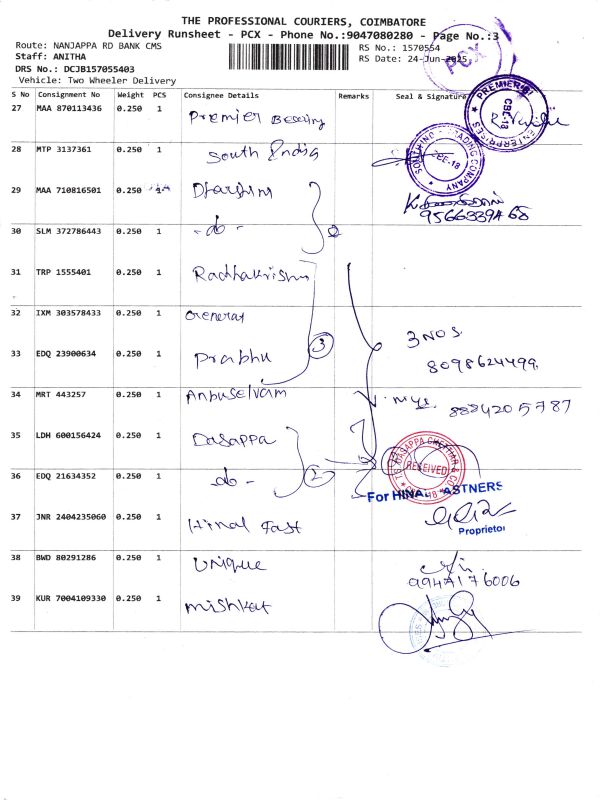 THE PROFESSIONAL COURIERS, COIMBATORE
Delivery Runsheet - PCX - Phone No.:9047080280 - Page No.:3
Route: NANJAPPA RD BANK CMS
RS No.: 1570554
Staff: ANITHA
RS Date: 24-Jun-2025
DRS No.: DCJB157055403
Vehicle: Two Wheeler Delivery
PCX
S No Consignment No Weight PCS Consignee Details Remarks Seal & Signature
27 MAA 870113436 0.250 1 Premier
PREMIER ENTERPRISES CBE-18
28 MTP 3137361 0.250 1 South India
TRADING COMPANY CBE-18
29 MAA 710816501 0.250 1
30 SLM 372786443 0.250 1 -do- 2
31 TRP 1555401 0.250 1 Radhakrishn
32 IXM 303578433 0.250 1 General
33 EDQ 23900634 0.250 1 Prabhu 3 3 NOS
8098624499
34 MRT 443257 0.250 1 Anbuselvam 8884205787
35 LDH 600156424 0.250 1 Dasappa
NANJAPPA CHETTIAR & CO RECEIVED
36 EDQ 21634352 0.250 1 -do- 2
For HINAL FASTNERS
37 JNR 2404235060 0.250 1 Hinal Fast
Proprietor
38 BWD 80291286 0.250 1 Unique
9947176006
39 KUR 7004109330 0.250 1 Mishkat